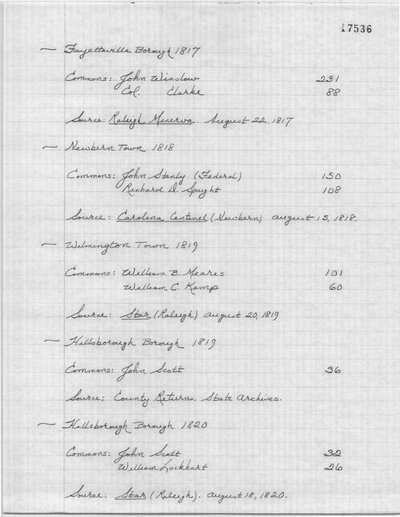 17536
— Fayetteville Borough 1817
Commons: John Winslow 231
Col. Clarke 88
Source: Raleigh Minerva. August 22, 1817
— Newbern Town 1818
Commons: John Stanly (Federal) 150
Richard D. Spaight 108
Source: Carolina Centinel (Newbern) August 15, 1818.
— Wilmington Town 1819
Commons: William B. Meares 101
William C. Kemp 60
Source: Star (Raleigh) August 20, 1819
— Hillsborough Borough 1819
Commons: John Scott 36
Source: County Returns. State Archives.
— Hillsborough Borough 1820
Commons: John Scott 32
William Lockhart 26
Source: Star (Raleigh). August 18, 1820.